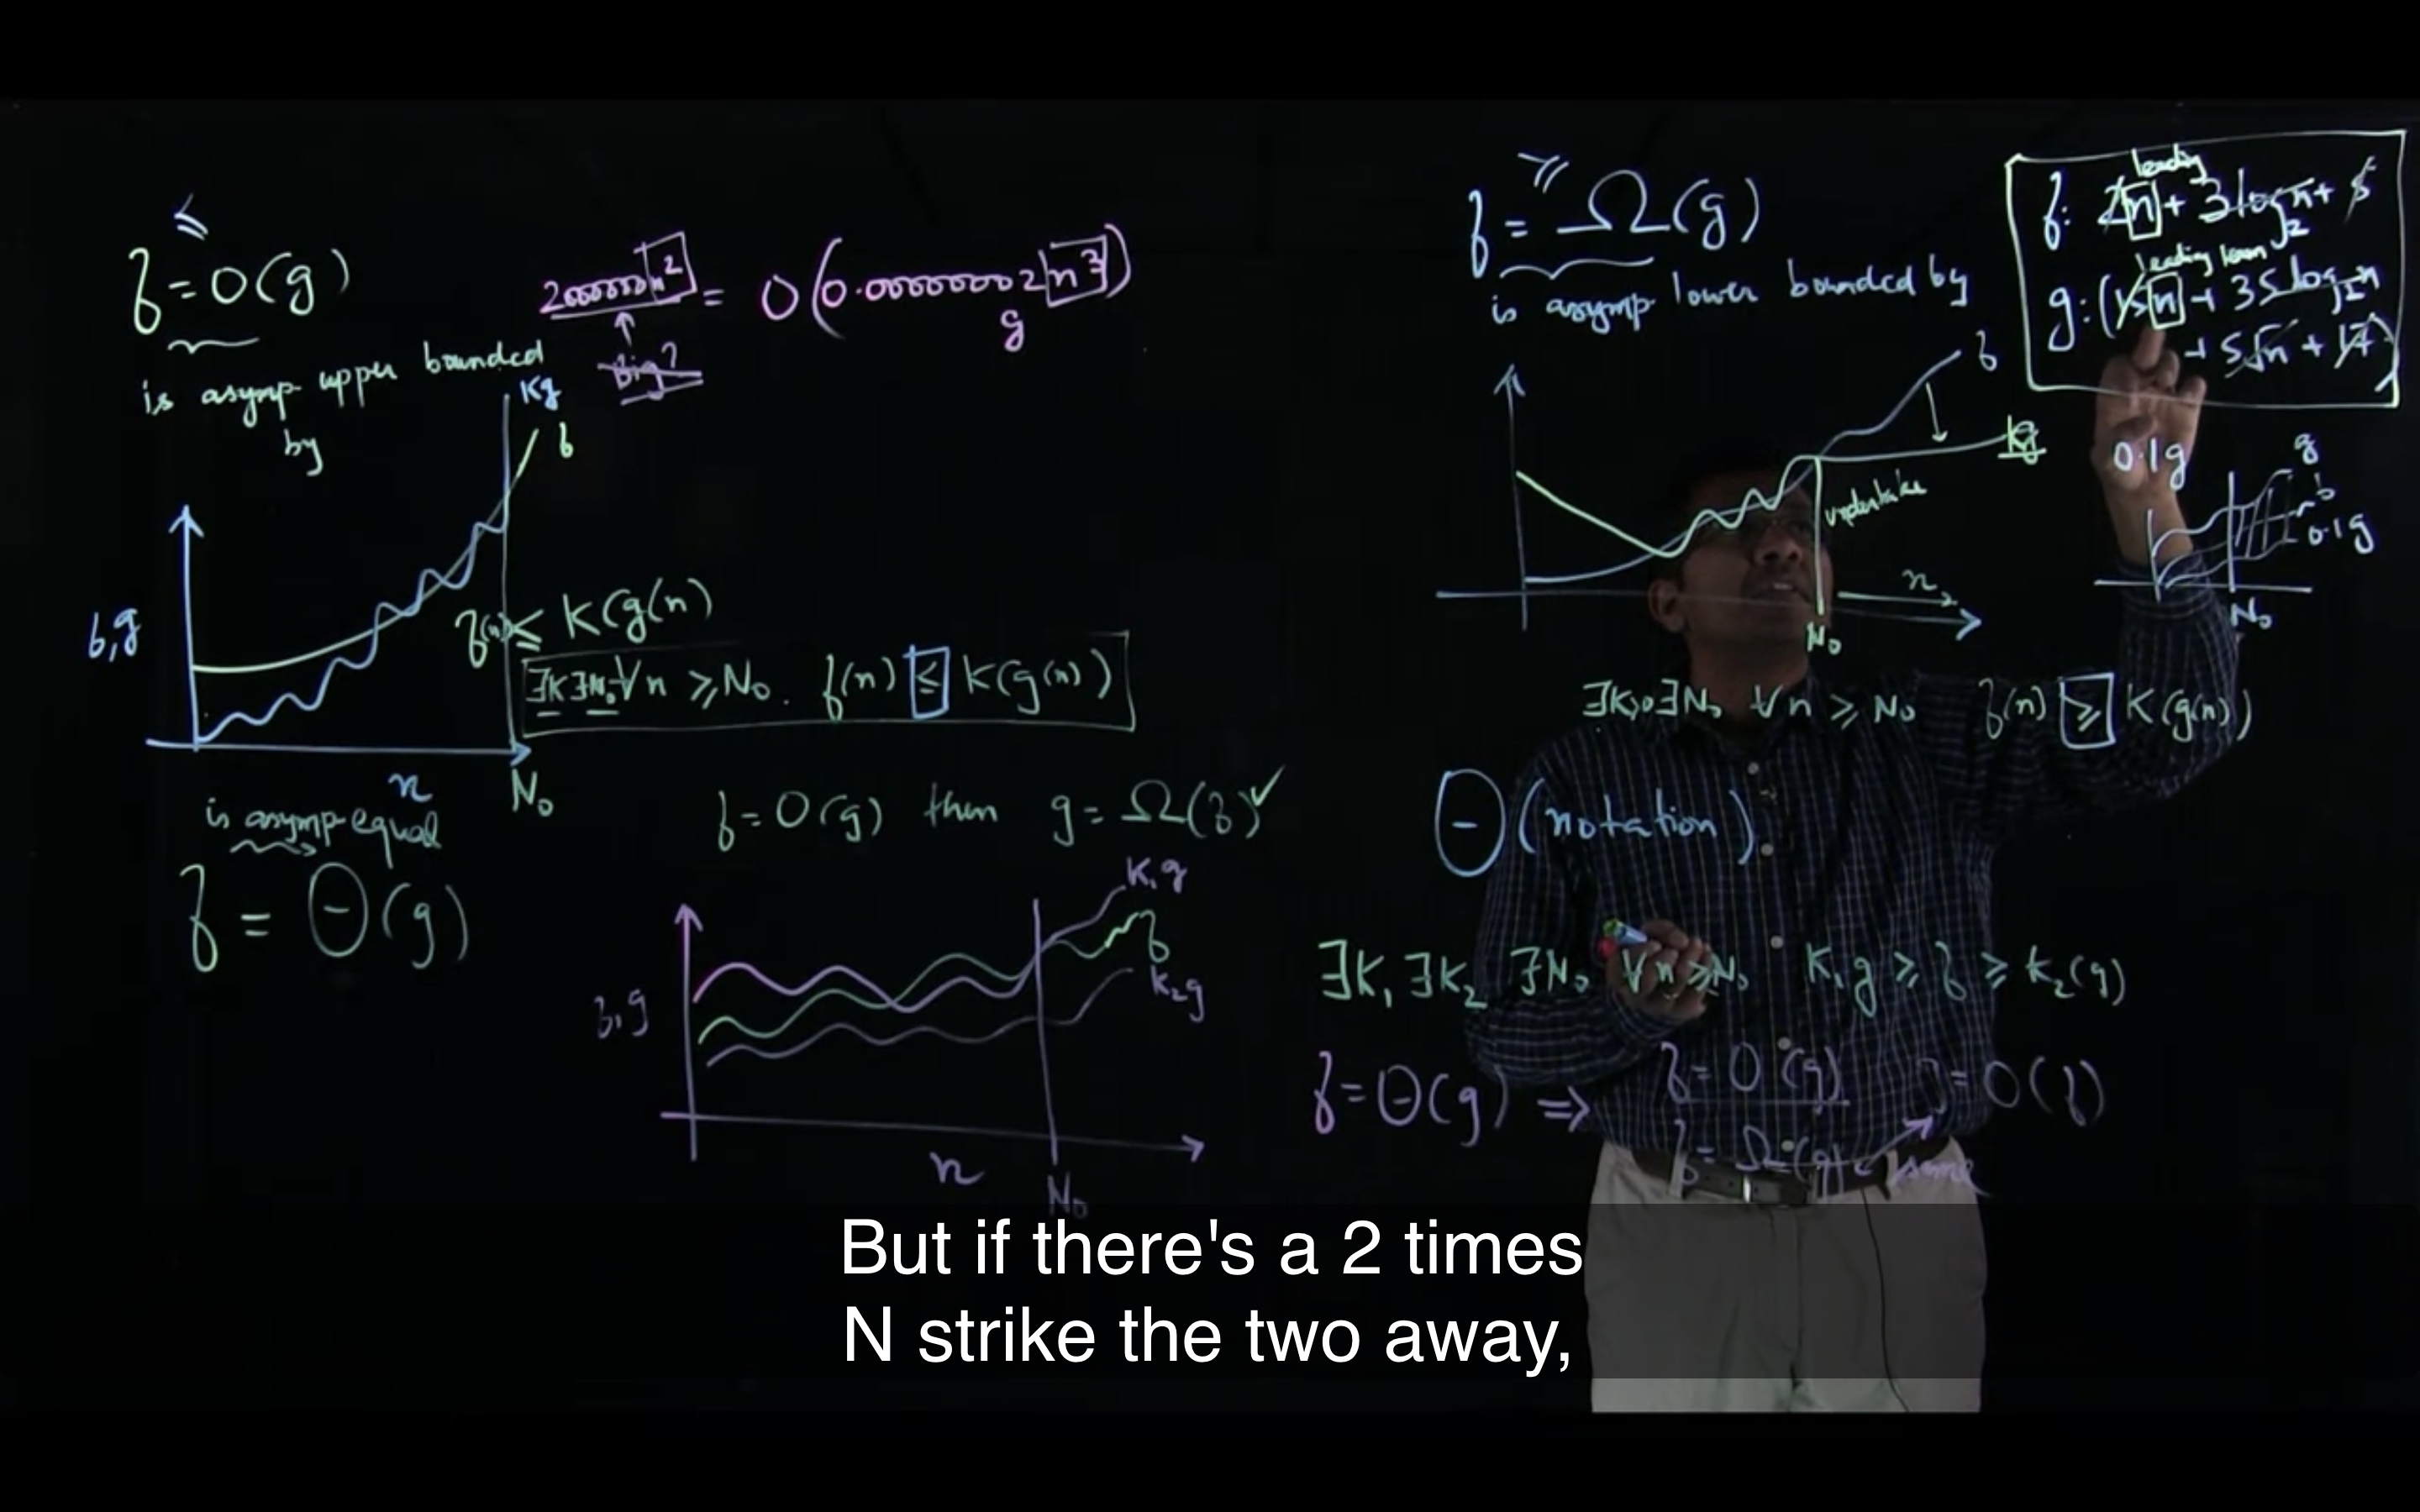 ≤
f = O(g)
is asymp upper bounded
by
2000000 n² = O(0.00000002 n³)
g
Big?
Kg
f
f,g
f(n) ≤ K(g(n)
∃K ∃N₀ ∀n ≥ N₀. f(n) ≤ K(g(n))
n
N₀
is asymp equal
f = Θ(g)
f = O(g) then g = Ω(f) ✓
K₁g
f
K₂g
f,g
n
N₀
≥
f = Ω(g)
is asymp lower bounded by
leading
f: 2n + 3log₂n + 5
leading term
g: (15n + 35log₂n
+ 5√n + 17)
f
Kg
undertake
n
N₀
0.1g
g
f
0.1g
N₀
∃K>0 ∃N₀ ∀n ≥ N₀ f(n) ≥ K(g(n))
Θ(notation)
∃K₁ ∃K₂ ∃N₀ ∀n ≥ N₀ K₁g ≥ f ≥ K₂(g)
f = Θ(g) ⇒ f = O(g) g = O(f)
f = Ω(g) same
But if there's a 2 times
N strike the two away,